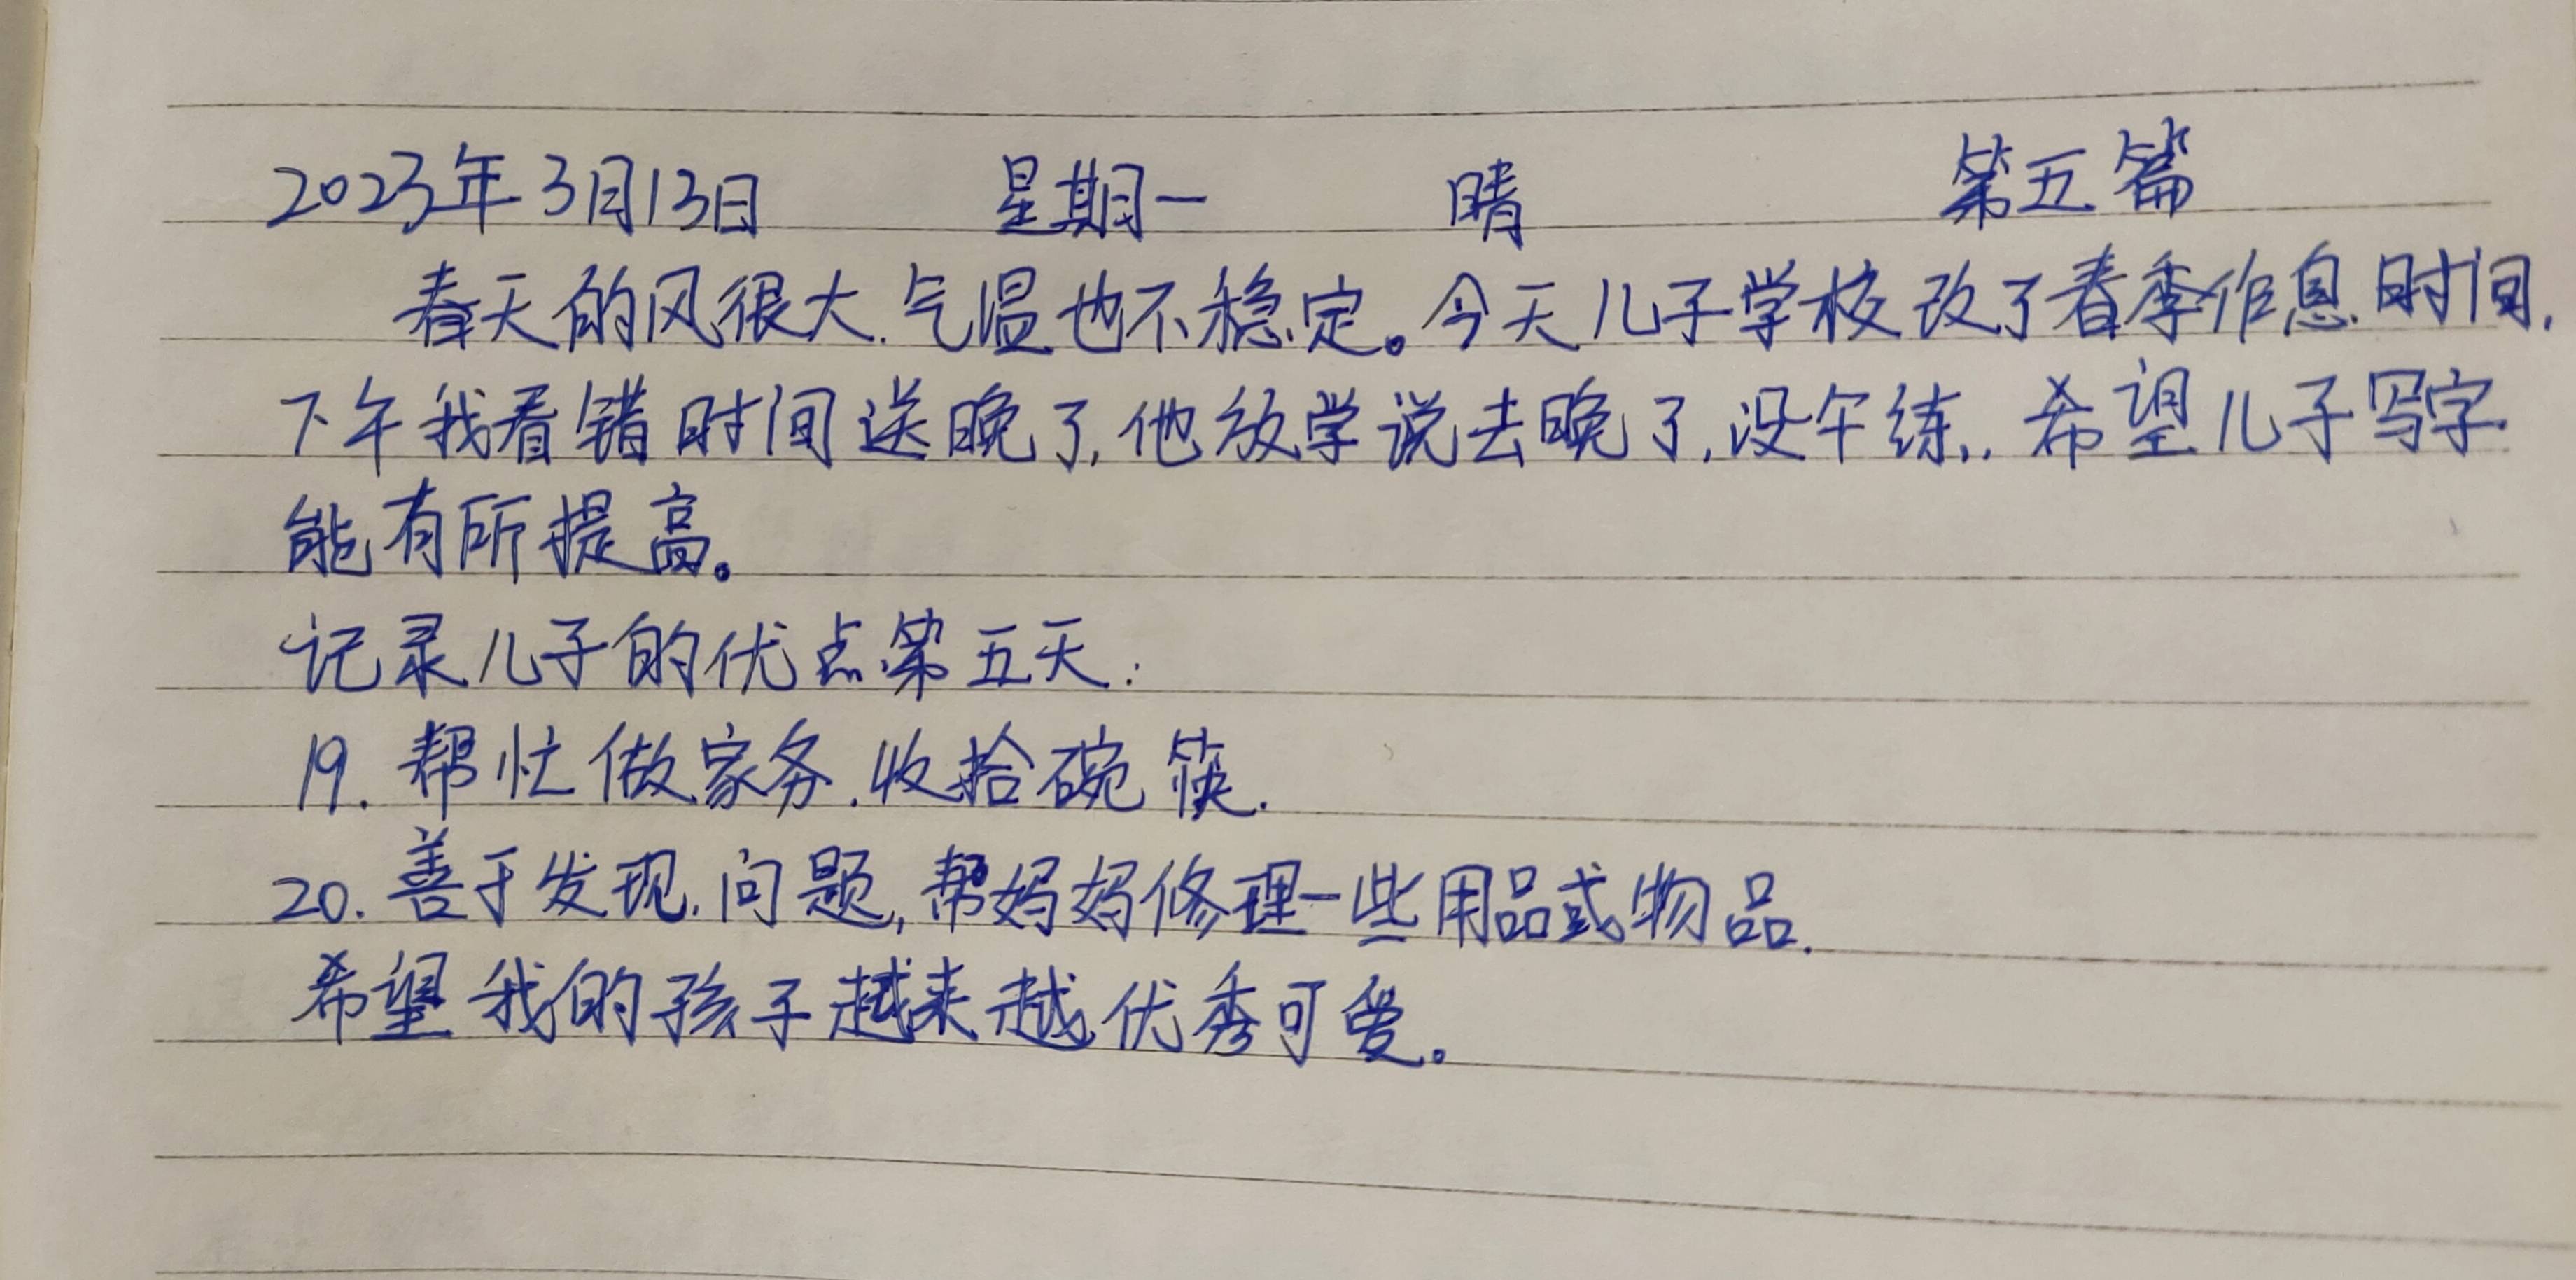 2023年3月13日 星期一 晴 第五篇
春天的风很大.气温也不稳定。今天儿子学校改了春季作息时间,
下午我看错时间送晚了,他放学说去晚了,没午练.. 希望儿子写字
能有所提高。
记录儿子的优点第五天:
19. 帮忙做家务.收拾碗筷.
20. 善于发现问题,帮妈妈修理一些用品或物品.
希望我的孩子越来越优秀可爱。